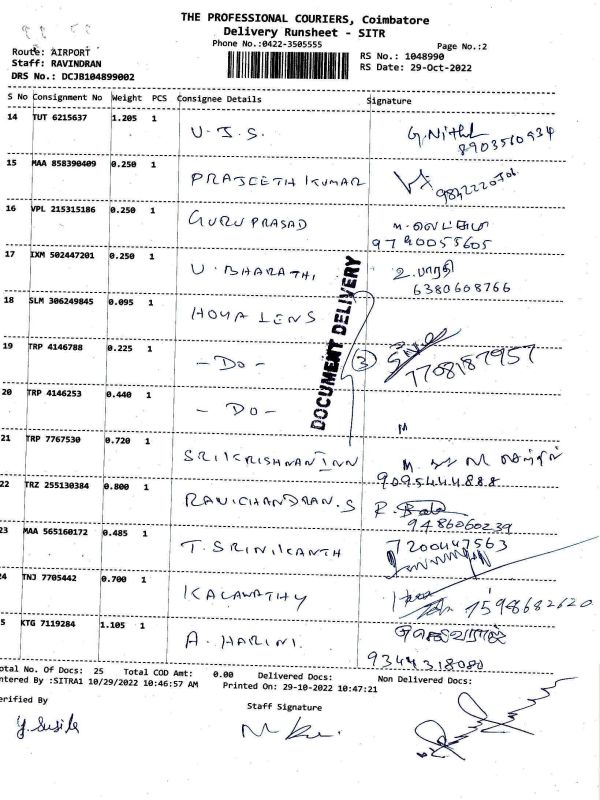 THE PROFESSIONAL COURIERS, Coimbatore
Delivery Runsheet - SITR
Phone No.:0422-3505555
Page No.:2
Route: AIRPORT
RS No.: 1048990
Staff: RAVINDRAN
RS Date: 29-Oct-2022
DRS No.: DCJB104899002
S No Consignment No Weight PCS Consignee Details Signature
14 TUT 6215637 1.205 1 U.J.S. G.Nithl 8903510934
15 MAA 858390409 0.250 1 PRAJEETH KUMAR
16 VPL 215315186 0.250 1 GURU PRASAD
9790055605
17 IXM 502447201 0.250 1 U. BHARATHI உ.பாரதி
6380608766
18 SLM 306249845 0.095 1 HOYA LENS
DOCUMENT DELIVERY
19 TRP 4146788 0.225 1 - DO - 3 7708187957
20 TRP 4146253 0.440 1 - DO -
M
21 TRP 7767530 0.720 1 SRI KRISHNAN INN
9095444888
22 TRZ 255130384 0.800 1 RAVICHANDRAN.S R. Bala
9486060239
23 MAA 565160172 0.485 1 T. SRINIKANTH 7200447563
24 TNJ 7705442 0.700 1 KALAWATHY 7598682620
5 KTG 7119284 1.105 1 A. HARINI
9344318080
otal No. Of Docs: 25 Total COD Amt: 0.00 Delivered Docs: Non Delivered Docs:
ntered By :SITRA1 10/29/2022 10:46:57 AM Printed On: 29-10-2022 10:47:21
erified By Staff Signature
y. Susila